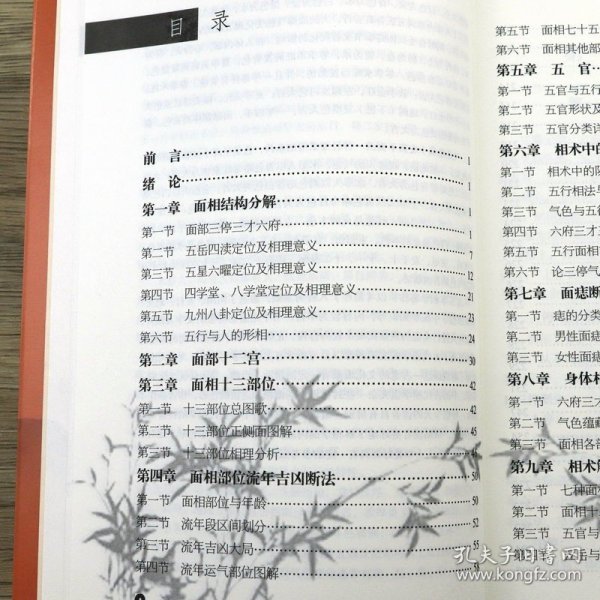 目 录
前 言 1
绪 论 1
第一章 面相结构分解 1
第一节 面部三停三才六府 1
第二节 五岳四渎定位及相理意义 7
第三节 五星六曜定位及相理意义 12
第四节 四学堂、八学堂定位及相理意义 21
第五节 九州八卦定位及相理意义 23
第六节 五行与人的形相 24
第二章 面部十二宫 30
第三章 面相十三部位 42
第一节 十三部位总图歌 42
第二节 十三部位正侧面图解 45
第三节 十三部位相理分析
第四章 面相部位流年吉凶断法 50
第一节 面相部位与年龄 50
第二节 流年段区间划分 52
第三节 流年吉凶大局 55
第四节 流年运气部位图解
第五节 面相七十五
第六节 面相其他部
第五章 五 官
第一节 五官与五行
第二节 五官形状及
第三节 五官分类详
第六章 相术中的
第一节 相术中的阴
第二节 五行相法与
第三节 气色与五行
第四节 六府三才三
第五节 五行面相
第六节 论三停气
第七章 面痣断
第一节 痣的分类
第二节 男性面痣
第三节 女性面痣
第八章 身体相
第一节 六府三才
第二节 气色蕴藏
第三节 面相各部
第九章 相术解
第一节 七种面
第二节 面相十
第三节 五官与
第四节 五岳与
孔夫子旧书网
www.kongfz.com